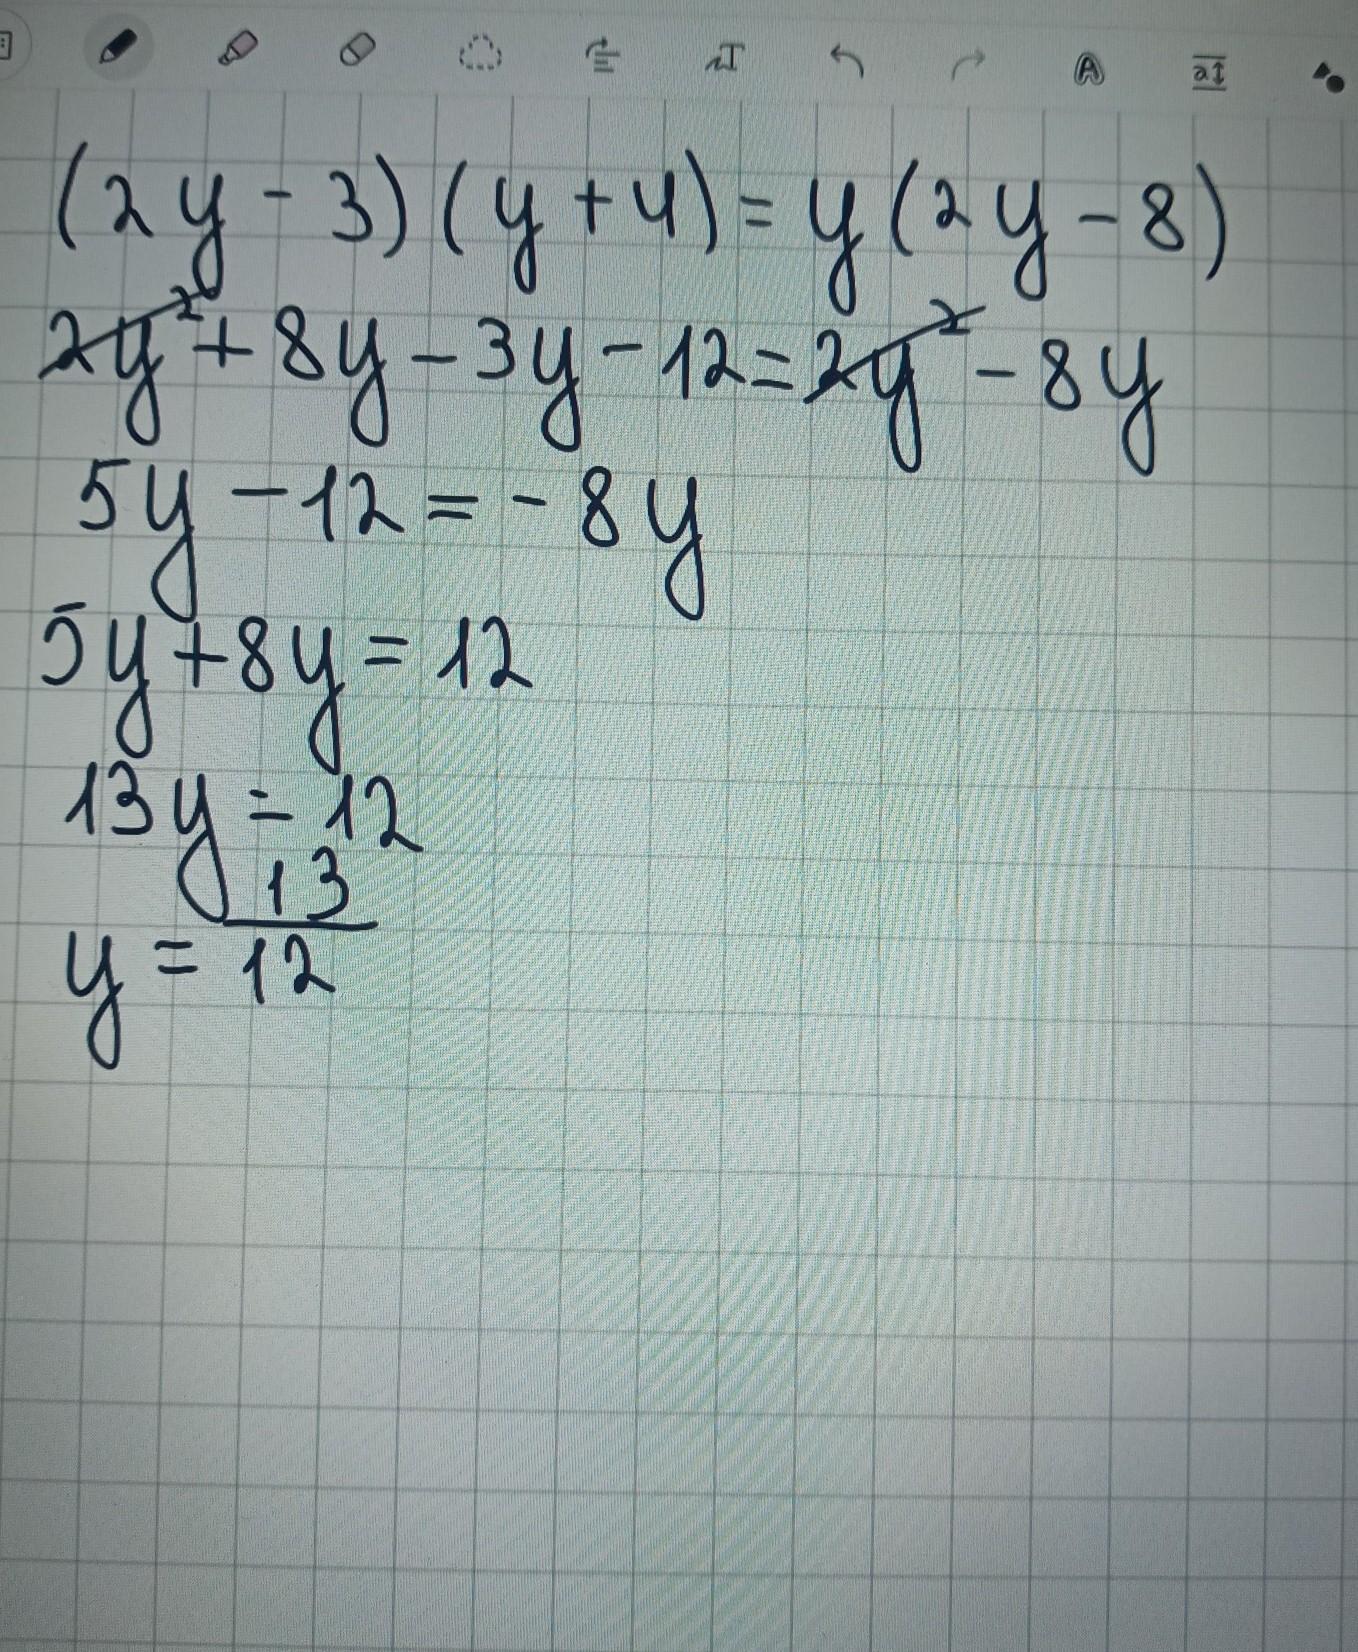 (2y - 3)(y + 4) = y(2y - 8)
2y² + 8y - 3y - 12 = 2y² - 8y
5y - 12 = - 8y
5y + 8y = 12
13y = 12
y = 13/12